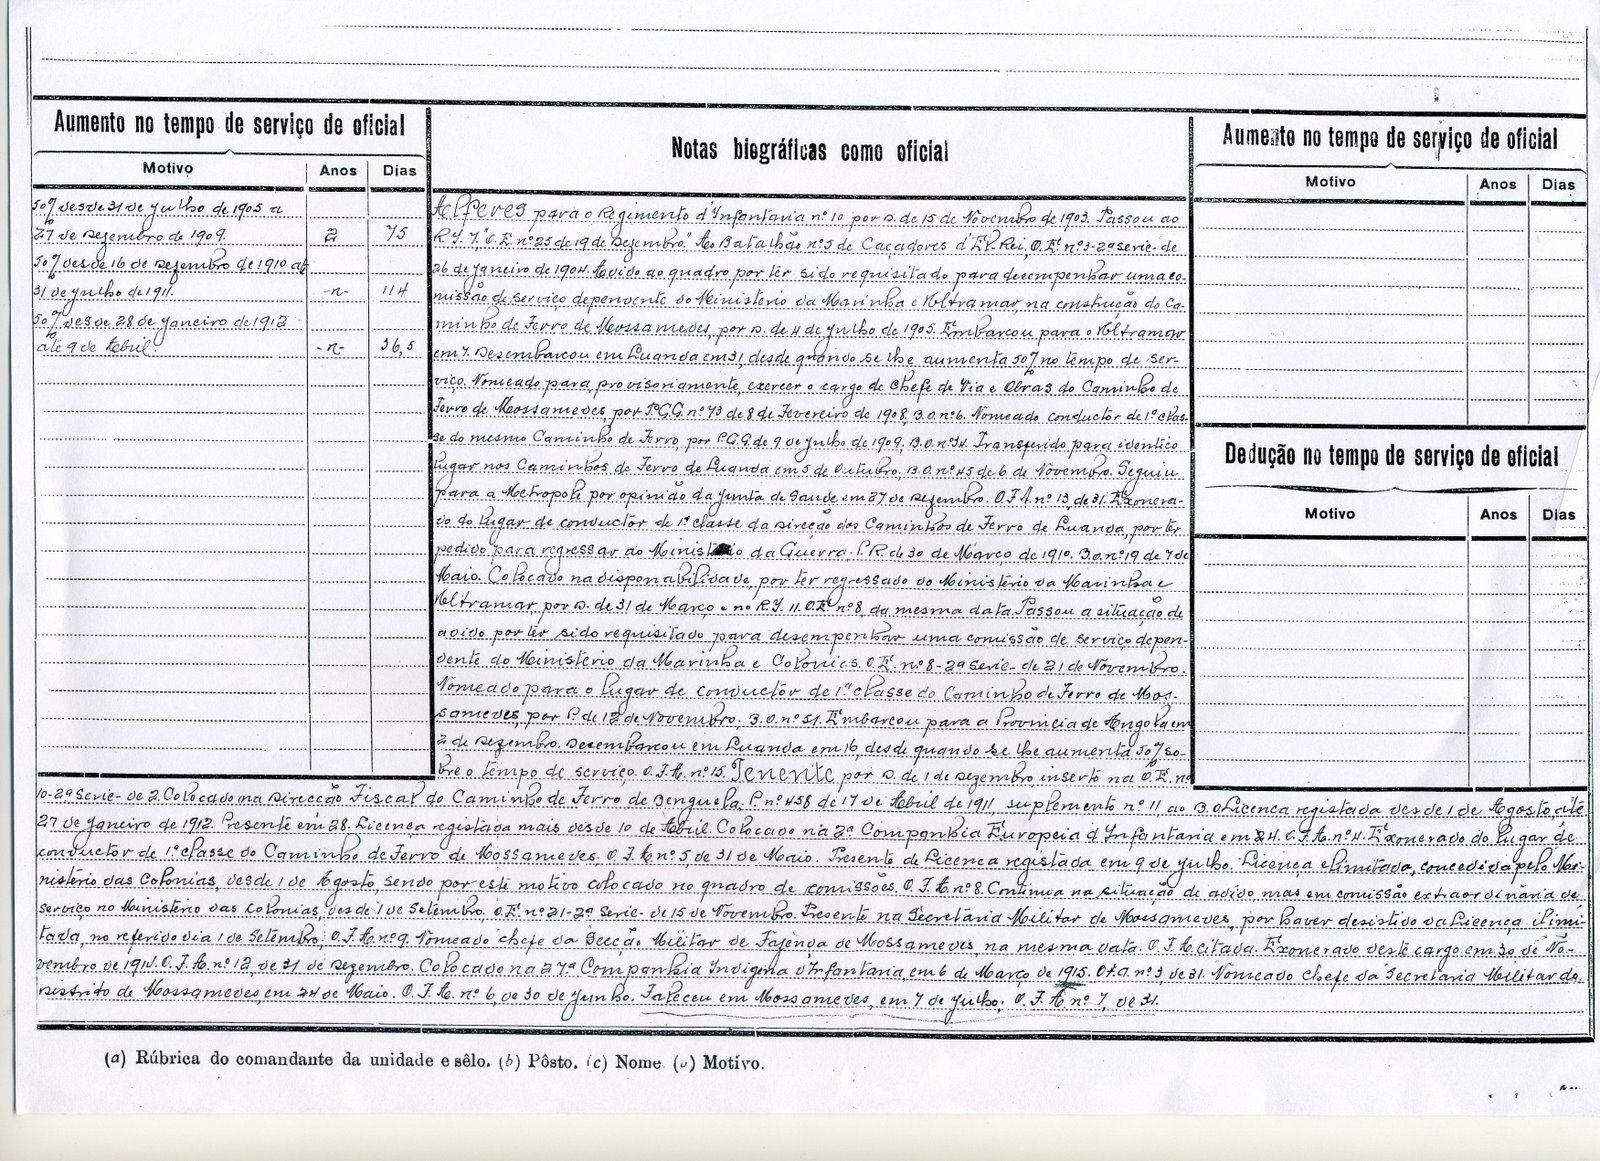 Aumento no tempo de serviço de oficial
Motivo Anos Dias
50% desde 31 de Julho de 1905 a
27 de Dezembro de 1909. 2 75
50% desde 16 de Dezembro de 1910 até
31 de Julho de 1911. -n- 114
50% desde 28 de Janeiro de 1912
até 9 de Abril. -n- 36,5
Notas biográficas como oficial
Alferes para o Regimento d'Infantaria nº 10 por D. de 15 de Novembro de 1903. Passou ao
R. I. 7. "O. E. nº 25 de 19 de Dezembro." Ao Batalhão nº 3 de Caçadores d'El-Rei, O. E. nº 3-2ª serie- de
26 de Janeiro de 1904. Adido ao quadro por ter sido requisitado para desempenhar uma co-
missão de serviço dependente do Ministério da Marinha e Ultramar, na construção do Ca-
minho de Ferro de Mossamedes, por D. de 4 de Julho de 1905. Embarcou para o Ultramar
em 7. Desembarcou em Luanda em 31, desde quando se lhe aumenta 50% no tempo de ser-
viço. Nomeado para, provisoriamente, exercer o cargo de Chefe de Via e Obras do Caminho de
Ferro de Mossamedes, por P.G.G. nº 73 de 8 de Fevereiro de 1908, B.O. nº 6. Nomeado conductor de 1ª clas-
se do mesmo Caminho de Ferro, por P.G.G. de 9 de Julho de 1909, B.O. nº 34. Transferido para identico
lugar nos Caminhos de Ferro de Luanda em 5 de Outubro. B.O. nº 45 de 6 de Novembro. Seguiu
para a Metropole por opinião da Junta de Saude em 27 de Dezembro. O.F.A. nº 13, de 31. Exonera-
do do lugar de conductor de 1ª classe da Direcção dos Caminhos de Ferro de Luanda, por ter
pedido para regressar ao Ministério da Guerra. P.R. de 30 de Março de 1910. B.O. nº 19 de 7 de
Maio. Colocado na disponabilidade, por ter regressado do Ministério da Marinha e
Ultramar, por D. de 31 de Março e no R. I. 11. O.E. nº 8, da mesma data. Passou a situação de
adido por ter sido requisitado para desempenhar uma comissão de serviço depen-
dente do Ministério da Marinha e Colonias. O.E. nº 8-2ª Serie- de 21 de Novembro.
Nomeado para o lugar de conductor de 1ª classe do Caminho de Ferro de Mos-
samedes, por P. de 12 de Novembro. B.O. nº 51. Embarcou para a Provincia de Angola em
2 de Dezembro. Desembarcou em Luanda em 16, desde quando se lhe aumenta 50% so-
bre o tempo de serviço. O.F.A. nº 15. Tenente por D. de 1 de Dezembro inserto na O.E. nº
10-2ª Serie- de 2. Colocado na Direcção Fiscal do Caminho de Ferro de Benguela. P. nº 458 de 17 de Abril de 1911, suplemento nº 11 ao B.O. Licença registada desde 1 de Agosto, até
27 de Janeiro de 1912. Presente em 28. Licença registada mais desde 10 de Abril. Colocado na 2ª Companhia Europeia d'Infantaria em 24. O.F.A. nº 4. Exonerado do lugar de
conductor de 1ª classe do Caminho de Ferro de Mossamedes. O.F.A. nº 5 de 31 de Maio. Presente de Licença registada em 9 de Julho. Licença elimitada, concedida pelo Mi-
nistério das Colonias, desde 1 de Agosto, sendo por este motivo colocado no quadro de comissões. O.F.A. nº 8. Continua na situação de adido mas em comissão extraordinária de
serviço no Ministério das Colonias, desde 1 de Setembro. O.E. nº 21-2ª Serie- de 15 de Novembro. Presente na Secretária Militar de Mossamedes, por haver desistido da Licença ilimi-
tada, no referido dia 1 de Setembro, O.F.A. nº 9. Nomeado chefe da Secção Militar de Fazenda de Mossamedes, na mesma data. O.F.A. citada. Exonerado deste cargo em 30 de No-
vembro de 1914. O.F.A. nº 12, de 31 de Dezembro. Colocado na 27ª Companhia Indigena d'Infantaria, em 6 de Março de 1915. O.F.A. nº 3 de 31. Nomeado Chefe da Secretaria Militar do
Distrito de Mossamedes, em 24 de Maio. O.F.A. nº 6, de 30 de Junho. Faleceu em Mossamedes, em 7 de Julho. O.F.A. nº 7, de 31.
Aumento no tempo de serviço de oficial
Motivo Anos Dias
Dedução no tempo de serviço de oficial
Motivo Anos Dias
(a) Rúbrica do comandante da unidade e sêlo. (b) Pôsto. (c) Nome (d) Motivo.